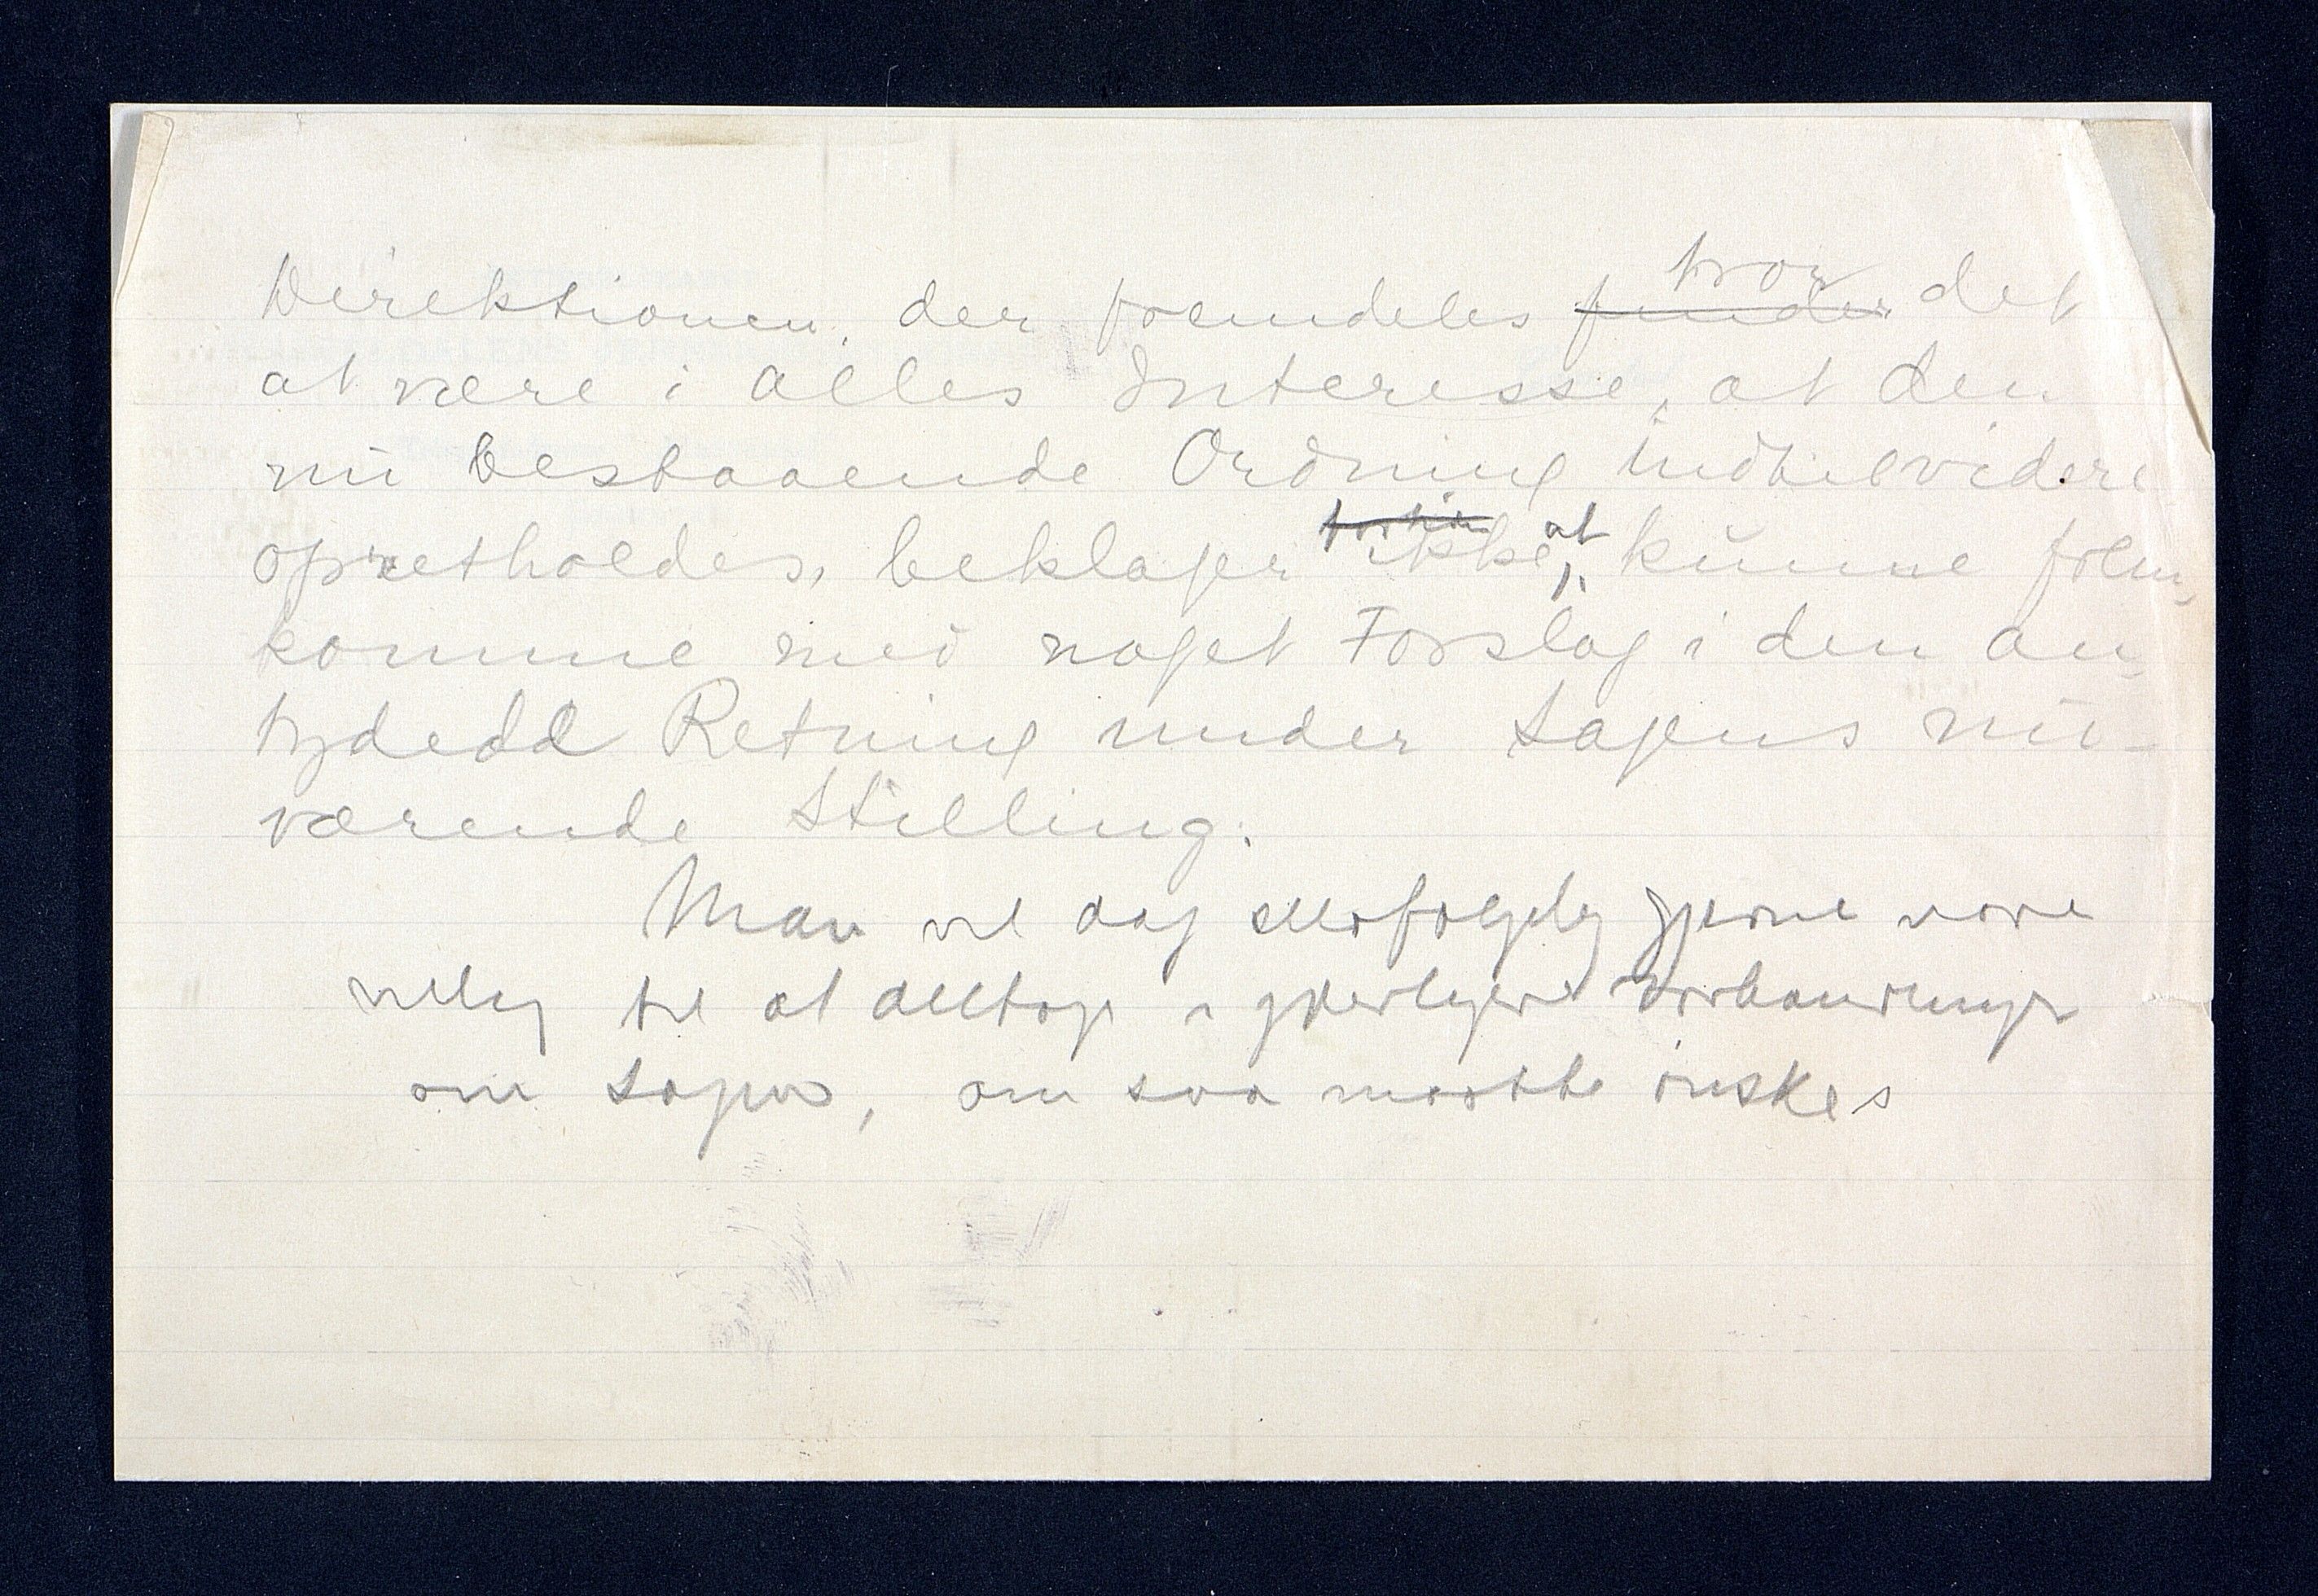 Direktionen, der fremdeles finder tror det
at være i alles Interesse, at den
nu bestaaende Ordning indtilvidere
opretholdes, beklager ikke at kunne frem,
komme med noget Forslag i den an,
tydede Retning under Sagens nu-
værende Stilling.
Man vil dog selvfølgelig gjerne være
villig til at deltage i yderligere Forhandlinger
om Sagen, om saa maatte ønskes